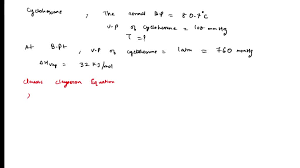 Cyclohexane , The normal B.P = 80.7°C
V.P of cyclohexane = 100 mmHg
T = ?
At B.pt, V.P of cyclohexane = 1 atm = 760 mmHg
ΔHvap = 32.7 J/mol
Clausis Clayperon Equation